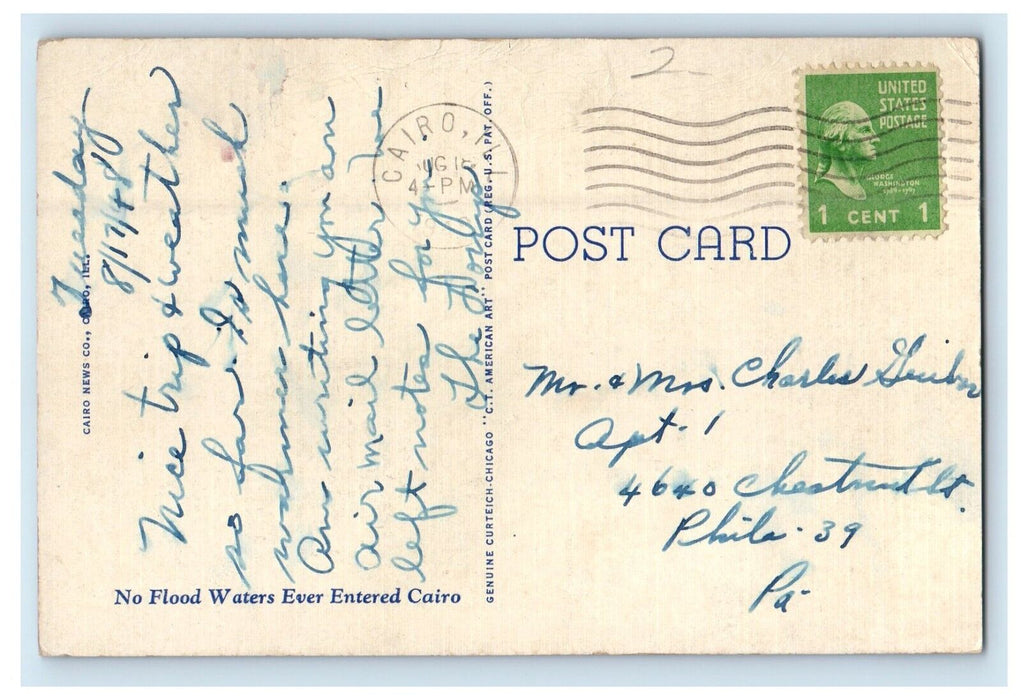 Tuesday
8/17/48
Nice trip & weather
so far. Is much
warmer here.
Am writing you an
air mail letter we
left notes for you.
The
CAIRO NEWS CO., CAIRO, ILL.
No Flood Waters Ever Entered Cairo
GENUINE CURTEICH-CHICAGO "C.T. AMERICAN ART" POST CARD (REG. U.S. PAT. OFF.)
2
CAIRO, ILL
AUG
4-PM
UNITED
STATES
POSTAGE
GEORGE
WASHINGTON
1789-1797
1 CENT 1
POST CARD
Mr. & Mrs. Charles
Apt. 1
4640 Chestnut St.
Phila. 39
Pa.